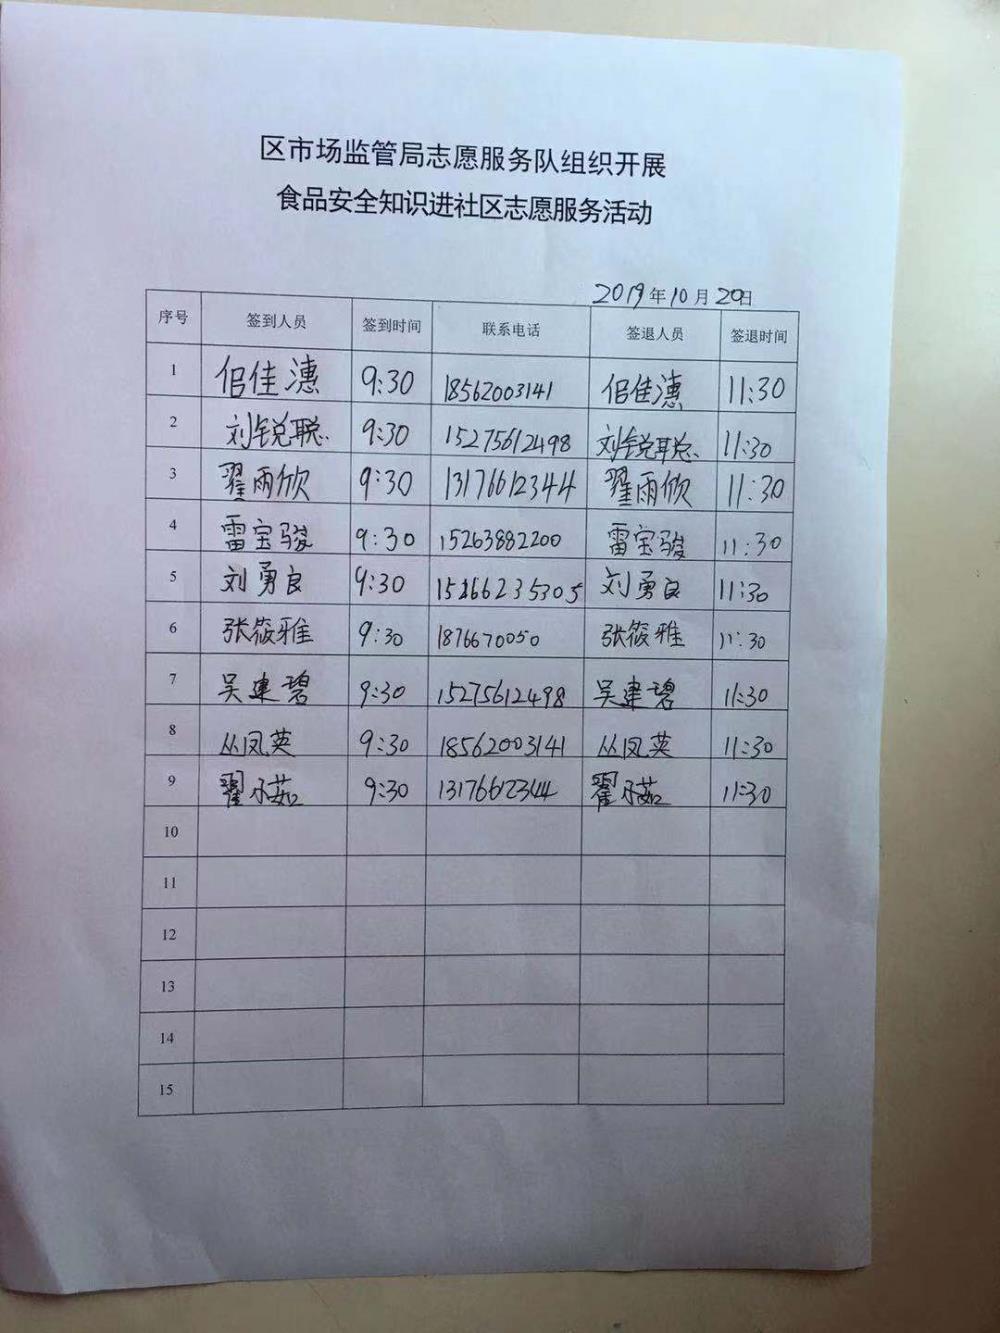 区市场监管局志愿服务队组织开展
食品安全知识进社区志愿服务活动
2019年10月20日
序号 签到人员 签到时间 联系电话 签退人员 签退时间
1 佀佳潓 9:30 18562003141 佀佳潓 11:30
2 刘锐聪 9:30 15275612498 刘锐聪 11:30
3 翟雨欣 9:30 13176612344 翟雨欣 11:30
4 雷宝骏 9:30 15263882200 雷宝骏 11:30
5 刘勇良 9:30 15266235305 刘勇良 11:30
6 张筱雅 9:30 1876670050 张筱雅 11:30
7 吴建碧 9:30 15275612498 吴建碧 11:30
8 丛凤英 9:30 18562003141 丛凤英 11:30
9 翟小茹 9:30 13176612344 翟小茹 11:30
10
11
12
13
14
15